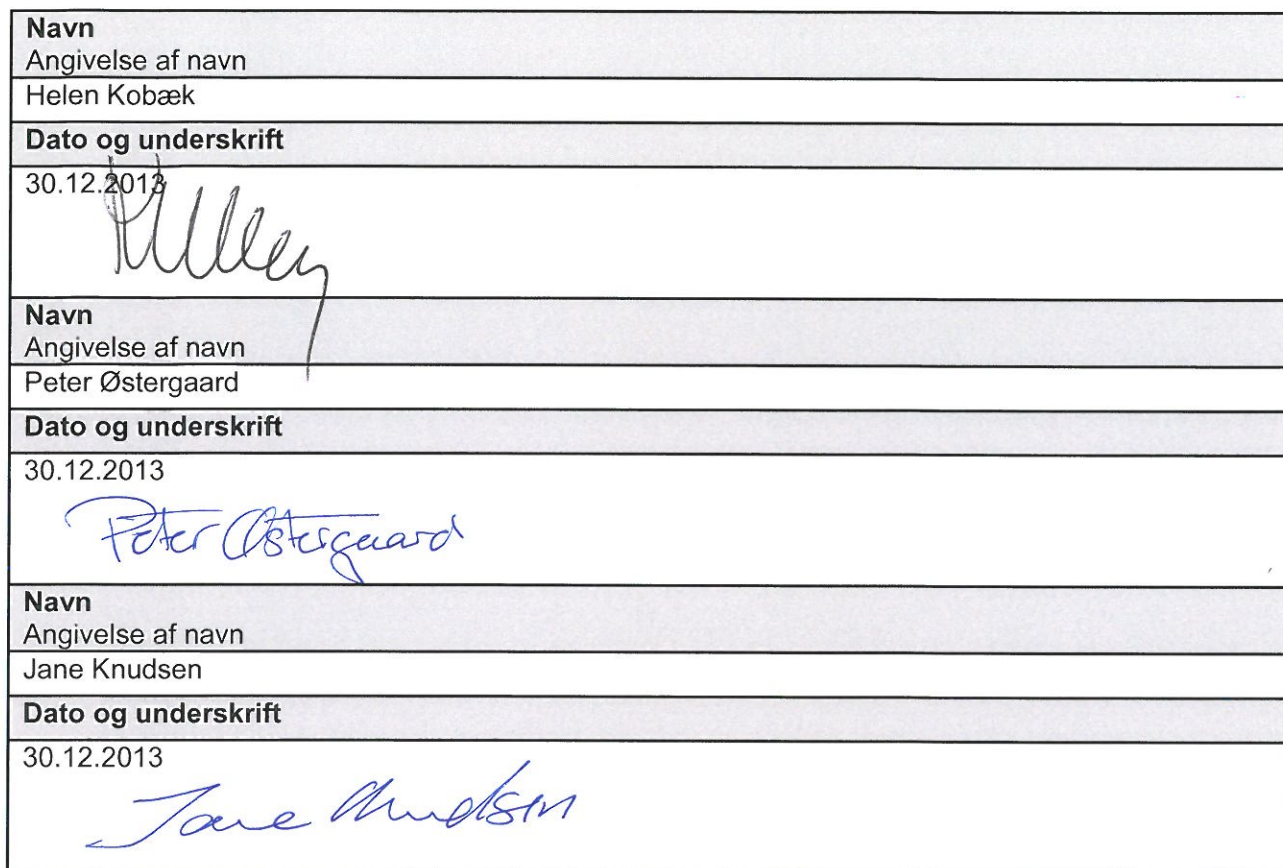 Navn
Angivelse af navn
Helen Kobæk
Dato og underskrift
30.12.2013
Navn
Angivelse af navn
Peter Østergaard
Dato og underskrift
30.12.2013
Peter Østergaard
Navn
Angivelse af navn
Jane Knudsen
Dato og underskrift
30.12.2013
Jane Knudsen